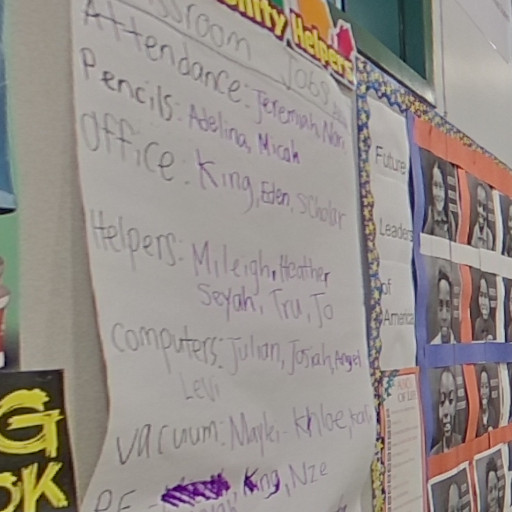 Helpers
Jobs
Attendance: Jeremiah,
Pencils: Adelina, Micah
Office: King, Eden, Scholar
Helpers: Mileigh, Heather
Seyah, Tru, Jo
Computers: Julian, Josiah, Angel
Levi
Vacuum: Khloe,
PE - King, Nze
Future
Leaders
of
America
G
OK